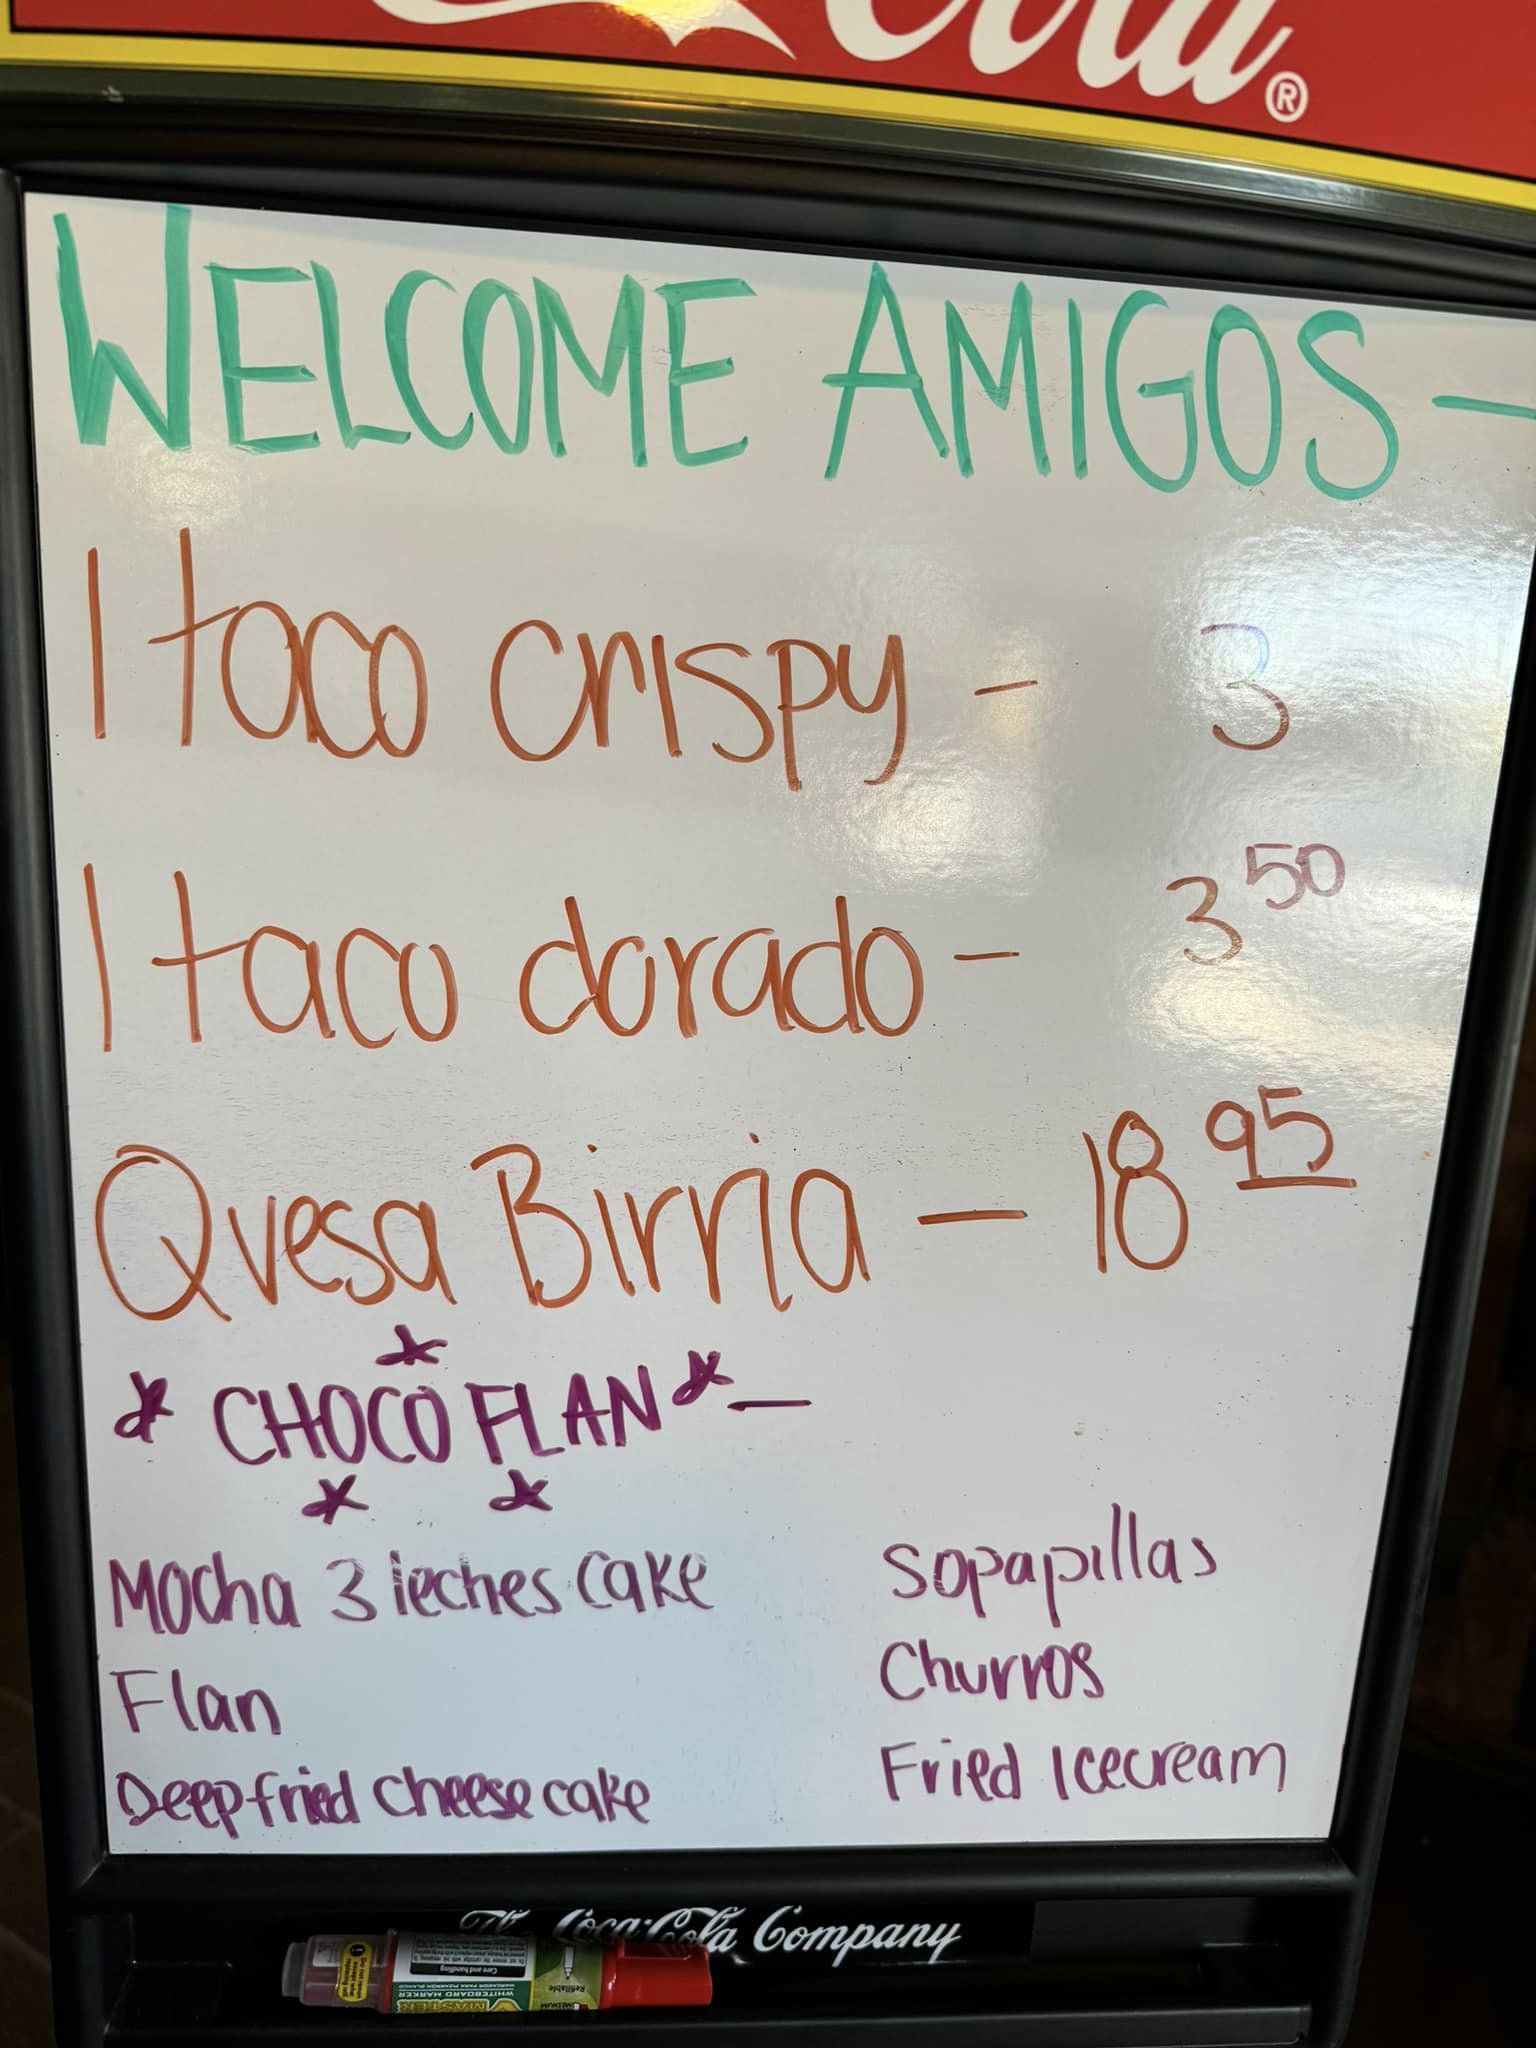 Cola®
WELCOME AMIGOS —
1 taco crispy - 3
1 taco dorado - 3 50
Quesa Birria — 18 95
* CHOCO FLAN * —
Mocha 3 leches cake
Flan
Deep fried cheese cake
Sopapillas
Churros
Fried Icecream
The Coca-Cola Company
Care and handling
WHITEBOARD MARKER
MASTER
Refillable
MEDIUM